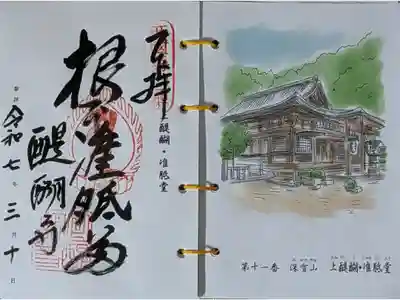 奉拝
醍醐・准胝堂
根本准胝尊
醍醐寺
令和七年三月十日
第十一番 深雪山 上醍醐・准胝堂